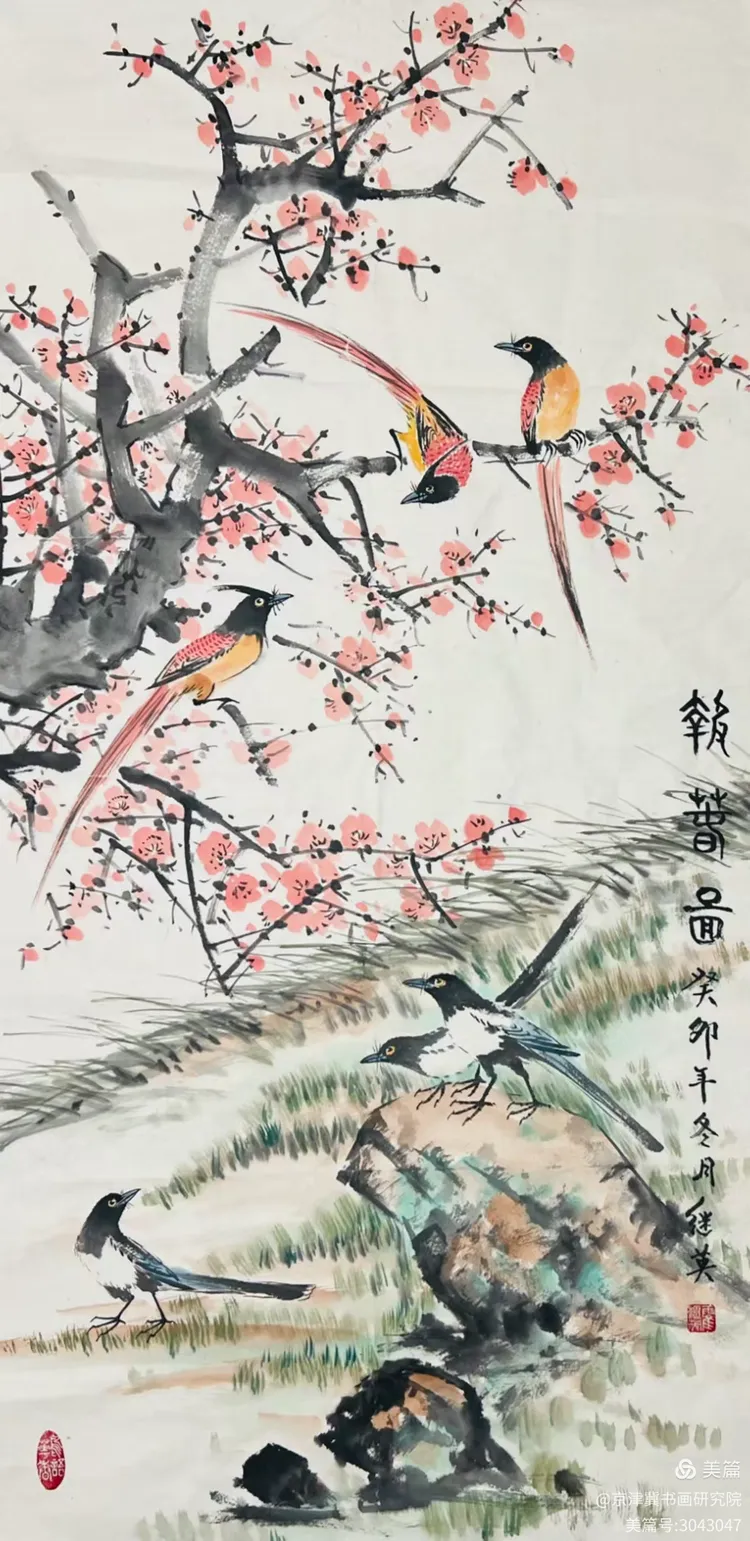 報春图
癸卯年冬月继英
美篇
@京津冀书画研究院
美篇号:3043047